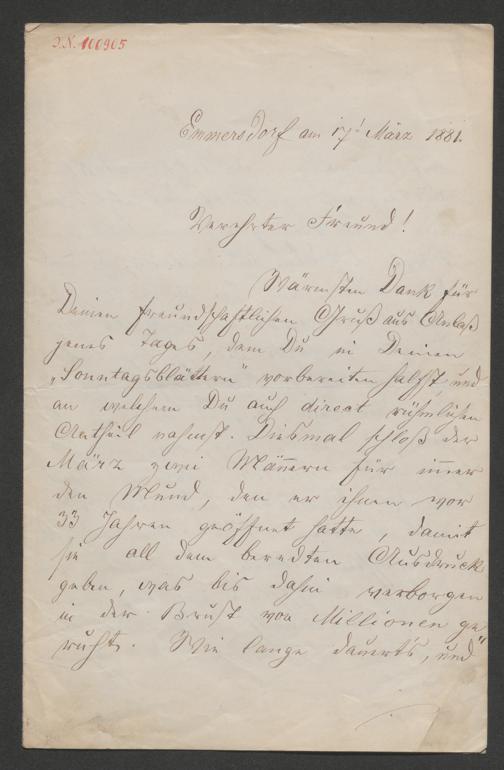 I.N. 100905
Emmersdorf am 17t März 1881.
Verehrter Freund!
Wärmsten Dank für
Deinen freundschaftlichen Gruß aus Anlaß
jenes Tages, dem Du in Deinen
„Sonntagsblättern" vorbereiten halfst, und
an welchem Du auch direct rühmlichen
Antheil nahmst. Diesmal schloß der
März zwei Männern für immer
den Mund, den er ihnen vor
33 Jahren geöffnet hatte, damit
sie all dem beredten Ausdruck
geben, was bis dahin verborgen
in der Brust von Millionen ge"
ruht. Wie lange dauert's, und